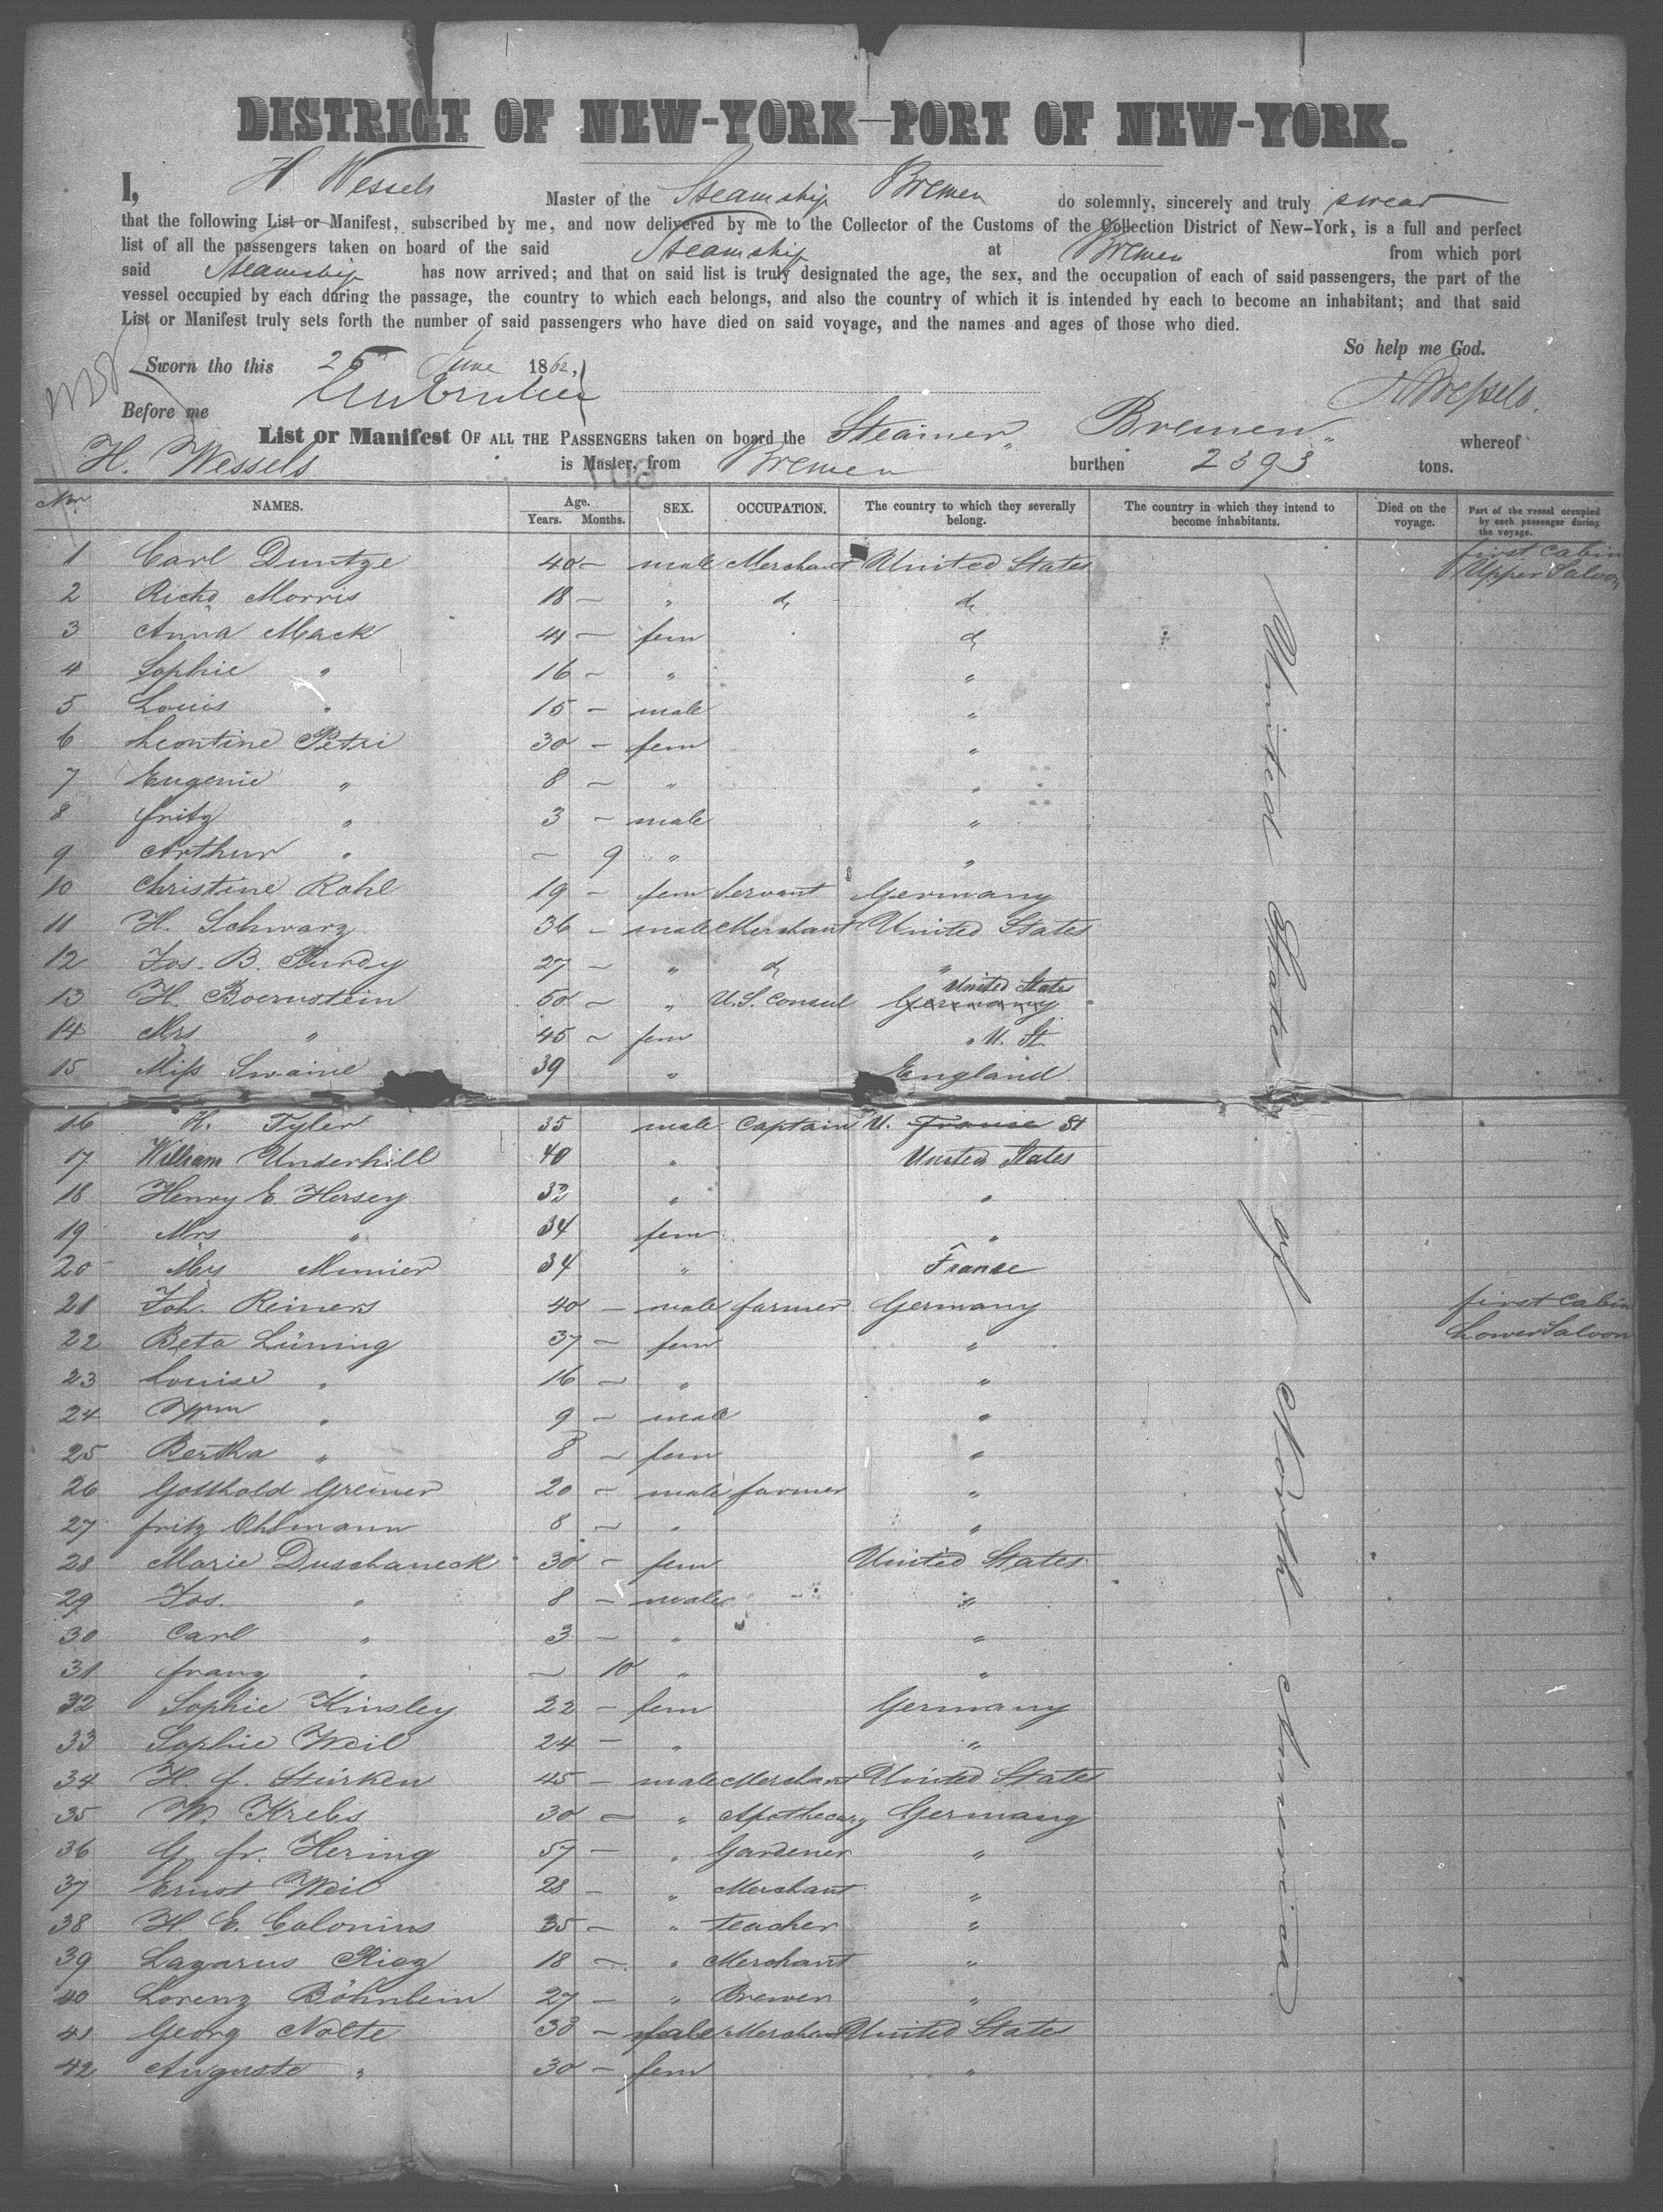 DISTRICT OF NEW-YORK—PORT OF NEW-YORK.
I, H. Wessels Master of the Steamship Bremen do solemnly, sincerely and truly swear
that the following List or Manifest, subscribed by me, and now delivered by me to the Collector of the Customs of the Collection District of New-York, is a full and perfect
list of all the passengers taken on board of the said Steamship at Bremen from which port
said Steamship has now arrived; and that on said list is truly designated the age, the sex, and the occupation of each of said passengers, the part of the
vessel occupied by each during the passage, the country to which each belongs, and also the country of which it is intended by each to become an inhabitant; and that said
List or Manifest truly sets forth the number of said passengers who have died on said voyage, and the names and ages of those who died.
So help me God.
Sworn tho this 25 June 1862,
HWessels.
Before me
List or Manifest OF ALL THE PASSENGERS taken on board the Steamer „ Bremen „ whereof
H. Wessels is Master, from Bremen burthen 2393 tons.
Nr. NAMES. Age. Years. Months. SEX. OCCUPATION. The country to which they severally belong. The country in which they intend to become inhabitants. Died on the voyage. Part of the vessel occupied by each passenger during the voyage.
1 Carl Duntze 40 – male Merchant United States first Cabin Upper Saloon
2 Richd Morris 18 – " do do
3 Anna Mack 41 – fem do
4 Sophie " 16 – " "
5 Louis " 15 – male "
6 Leontine Petri 30 – fem "
7 Eugenie " 8 – " "
8 fritz " 3 – male "
9 Arthur " – 9 " "
10 Christine Rohl 19 – fem Servant Germany
11 H. Schwarz 36 – male Merchant United States
12 Jos. B. Purdy 27 – " do "
13 H. Boernstein 50 – " U.S. Consul Germany United States
14 Mrs " 45 – fem " U. St.
15 Miss Swaine 39 " England
16 H. Tyler 35 male Captain U. France St
17 William Underhill 40 " United States
18 Henry E. Hersey 32 " "
19 Mrs " 34 fem "
20 Mrs Munier 34 " France
21 Joh. Reiners 40 – male farmer Germany first Cabin
22 Beta Lüning 37 – fem " Lower Saloon
23 Louise " 16 – " "
24 Wm " 9 – male "
25 Bertha " 8 – fem "
26 Gotthold Greiner 20 – male farmer "
27 fritz Ohlmann 8 – " "
28 Marie Duschaneck 30 – fem United States
29 Jos. " 8 – male "
30 Carl " 3 – " "
31 franz " – 10 " "
32 Sophie Kinsley 22 – fem Germany
33 Sophie Weil 24 – " "
34 H. f. Stürken 45 – male Merchant United States
35 W. Krebs 30 – " Apothecary Germany
36 G. fr. Hering 57 – " Gardener "
37 Ernst Weil 28 – " Merchant "
38 H. E. Colonius 35 – " teacher "
39 Lazarus Riez 18 – " Merchant "
40 Lorenz Böhnlein 27 – " Brewer "
41 Georg Nolte 38 – male Merchant United States
42 Auguste " 30 – fem "
United States of North America